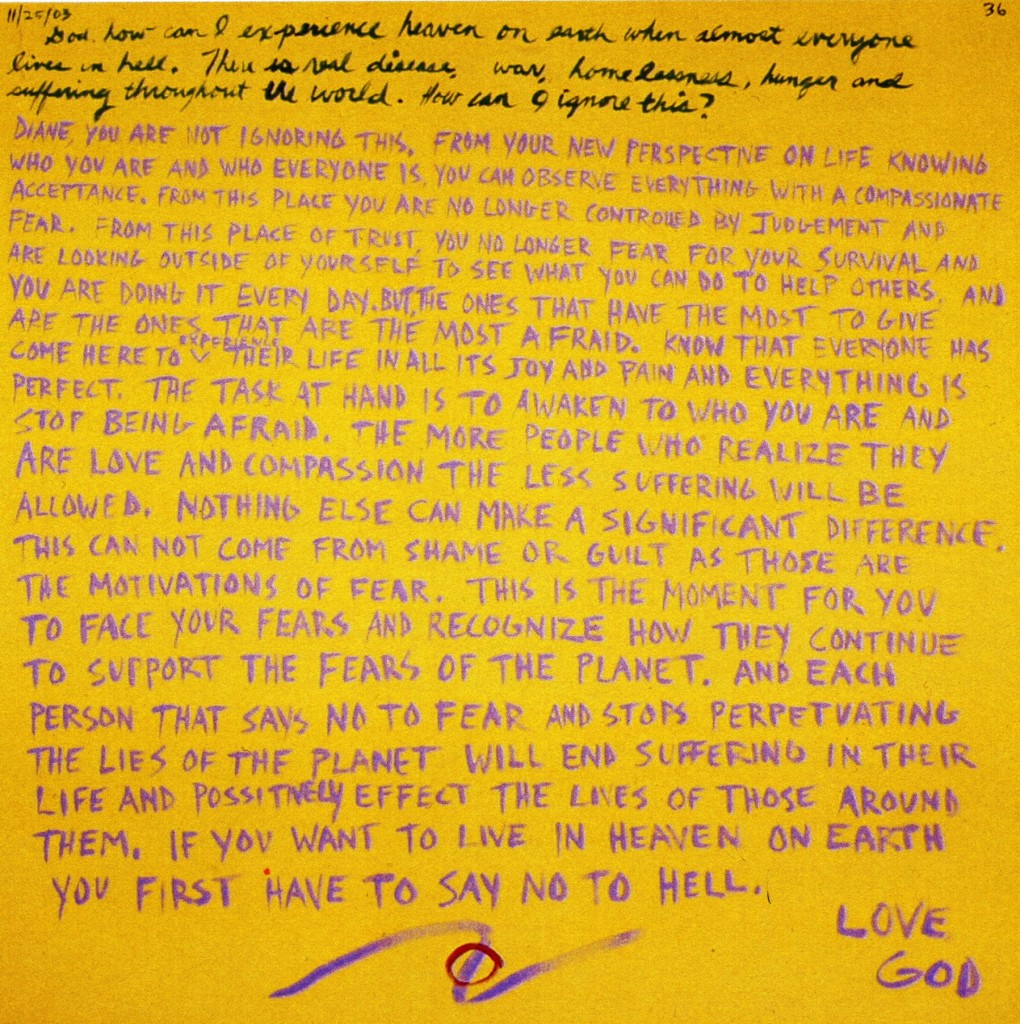 11/25/03
36
God. how can I experience heaven on earth when almost everyone
lives in hell. There is real disease, war, homelessness, hunger and
suffering throughout the world. How can I ignore this?
DIANE, YOU ARE NOT IGNORING THIS. FROM YOUR NEW PERSPECTIVE ON LIFE KNOWING
WHO YOU ARE AND WHO EVERYONE IS, YOU CAN OBSERVE EVERYTHING WITH A COMPASSIONATE
ACCEPTANCE. FROM THIS PLACE YOU ARE NO LONGER CONTROLLED BY JUDGEMENT AND
FEAR. FROM THIS PLACE OF TRUST, YOU NO LONGER FEAR FOR YOUR SURVIVAL AND
ARE LOOKING OUTSIDE OF YOURSELF TO SEE WHAT YOU CAN DO TO HELP OTHERS. AND
YOU ARE DOING IT EVERY DAY. BUT, THE ONES THAT HAVE THE MOST TO GIVE
ARE THE ONES THAT ARE THE MOST AFRAID. KNOW THAT EVERYONE HAS
COME HERE TO EXPERIENCE THEIR LIFE IN ALL ITS JOY AND PAIN AND EVERYTHING IS
PERFECT. THE TASK AT HAND IS TO AWAKEN TO WHO YOU ARE AND
STOP BEING AFRAID. THE MORE PEOPLE WHO REALIZE THEY
ARE LOVE AND COMPASSION THE LESS SUFFERING WILL BE
ALLOWED. NOTHING ELSE CAN MAKE A SIGNIFICANT DIFFERENCE.
THIS CAN NOT COME FROM SHAME OR GUILT AS THOSE ARE
THE MOTIVATIONS OF FEAR. THIS IS THE MOMENT FOR YOU
TO FACE YOUR FEARS AND RECOGNIZE HOW THEY CONTINUE
TO SUPPORT THE FEARS OF THE PLANET. AND EACH
PERSON THAT SAYS NO TO FEAR AND STOPS PERPETUATING
THE LIES OF THE PLANET WILL END SUFFERING IN THEIR
LIFE AND POSSITIVELY EFFECT THE LIVES OF THOSE AROUND
THEM. IF YOU WANT TO LIVE IN HEAVEN ON EARTH
YOU FIRST HAVE TO SAY NO TO HELL.
LOVE
GOD